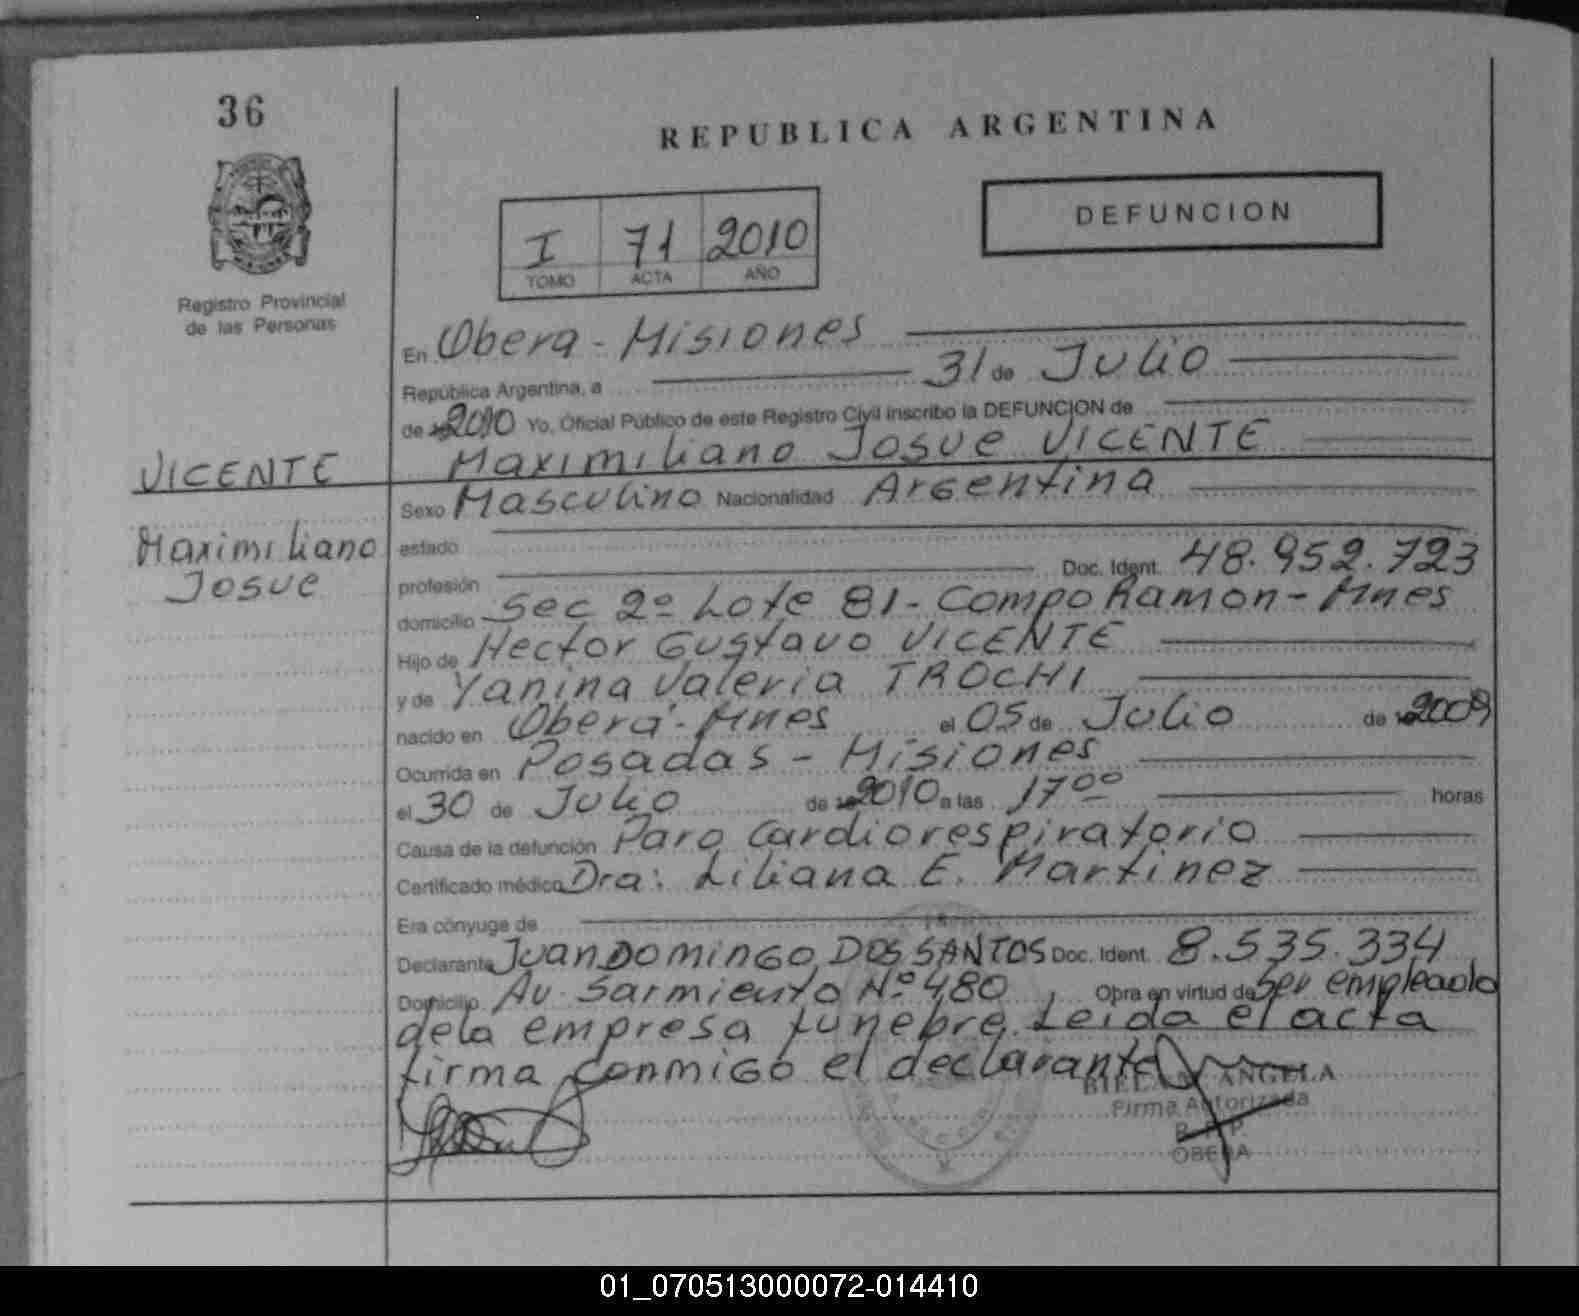 36
REPUBLICA ARGENTINA
DEFUNCION
I 71 2010
TOMO ACTA AÑO
Registro Provincial
de las Personas
En Obera - Misiones
República Argentina, a 31 de Julio
de 2010 Yo, Oficial Público de este Registro Civil inscribo la DEFUNCION de
Maximiliano Josue VICENTE
VICENTE
Maximiliano
Josue
Sexo Masculino Nacionalidad Argentina
estado
profesión Doc. Ident. 48.952.723
domicilio Sec 2º Lote 81 - Campo Ramon - Mnes
Hijo de Hector Gustavo VICENTE
y de Yanina Valeria TROCHI
nacido en Oberá - Mnes el 05 de Julio de 2009
Ocurrida en Posadas - Misiones
el 30 de Julio de 2010 a las 17 00 horas
Causa de la defunción Paro Cardiorespiratorio
Certificado médico Dra: Liliana E. Martinez
Era cónyuge de
Declarante Juan DOMINGO DOS SANTOS Doc. Ident. 8.535.334
Domicilio Av. Sarmiento Nº 480 Obra en virtud de Ser empleado
dela empresa funebre. Leida el acta
firma conmigo el declarante
ANGELA
Firma Autorizada
OBERA
01_070513000072-014410